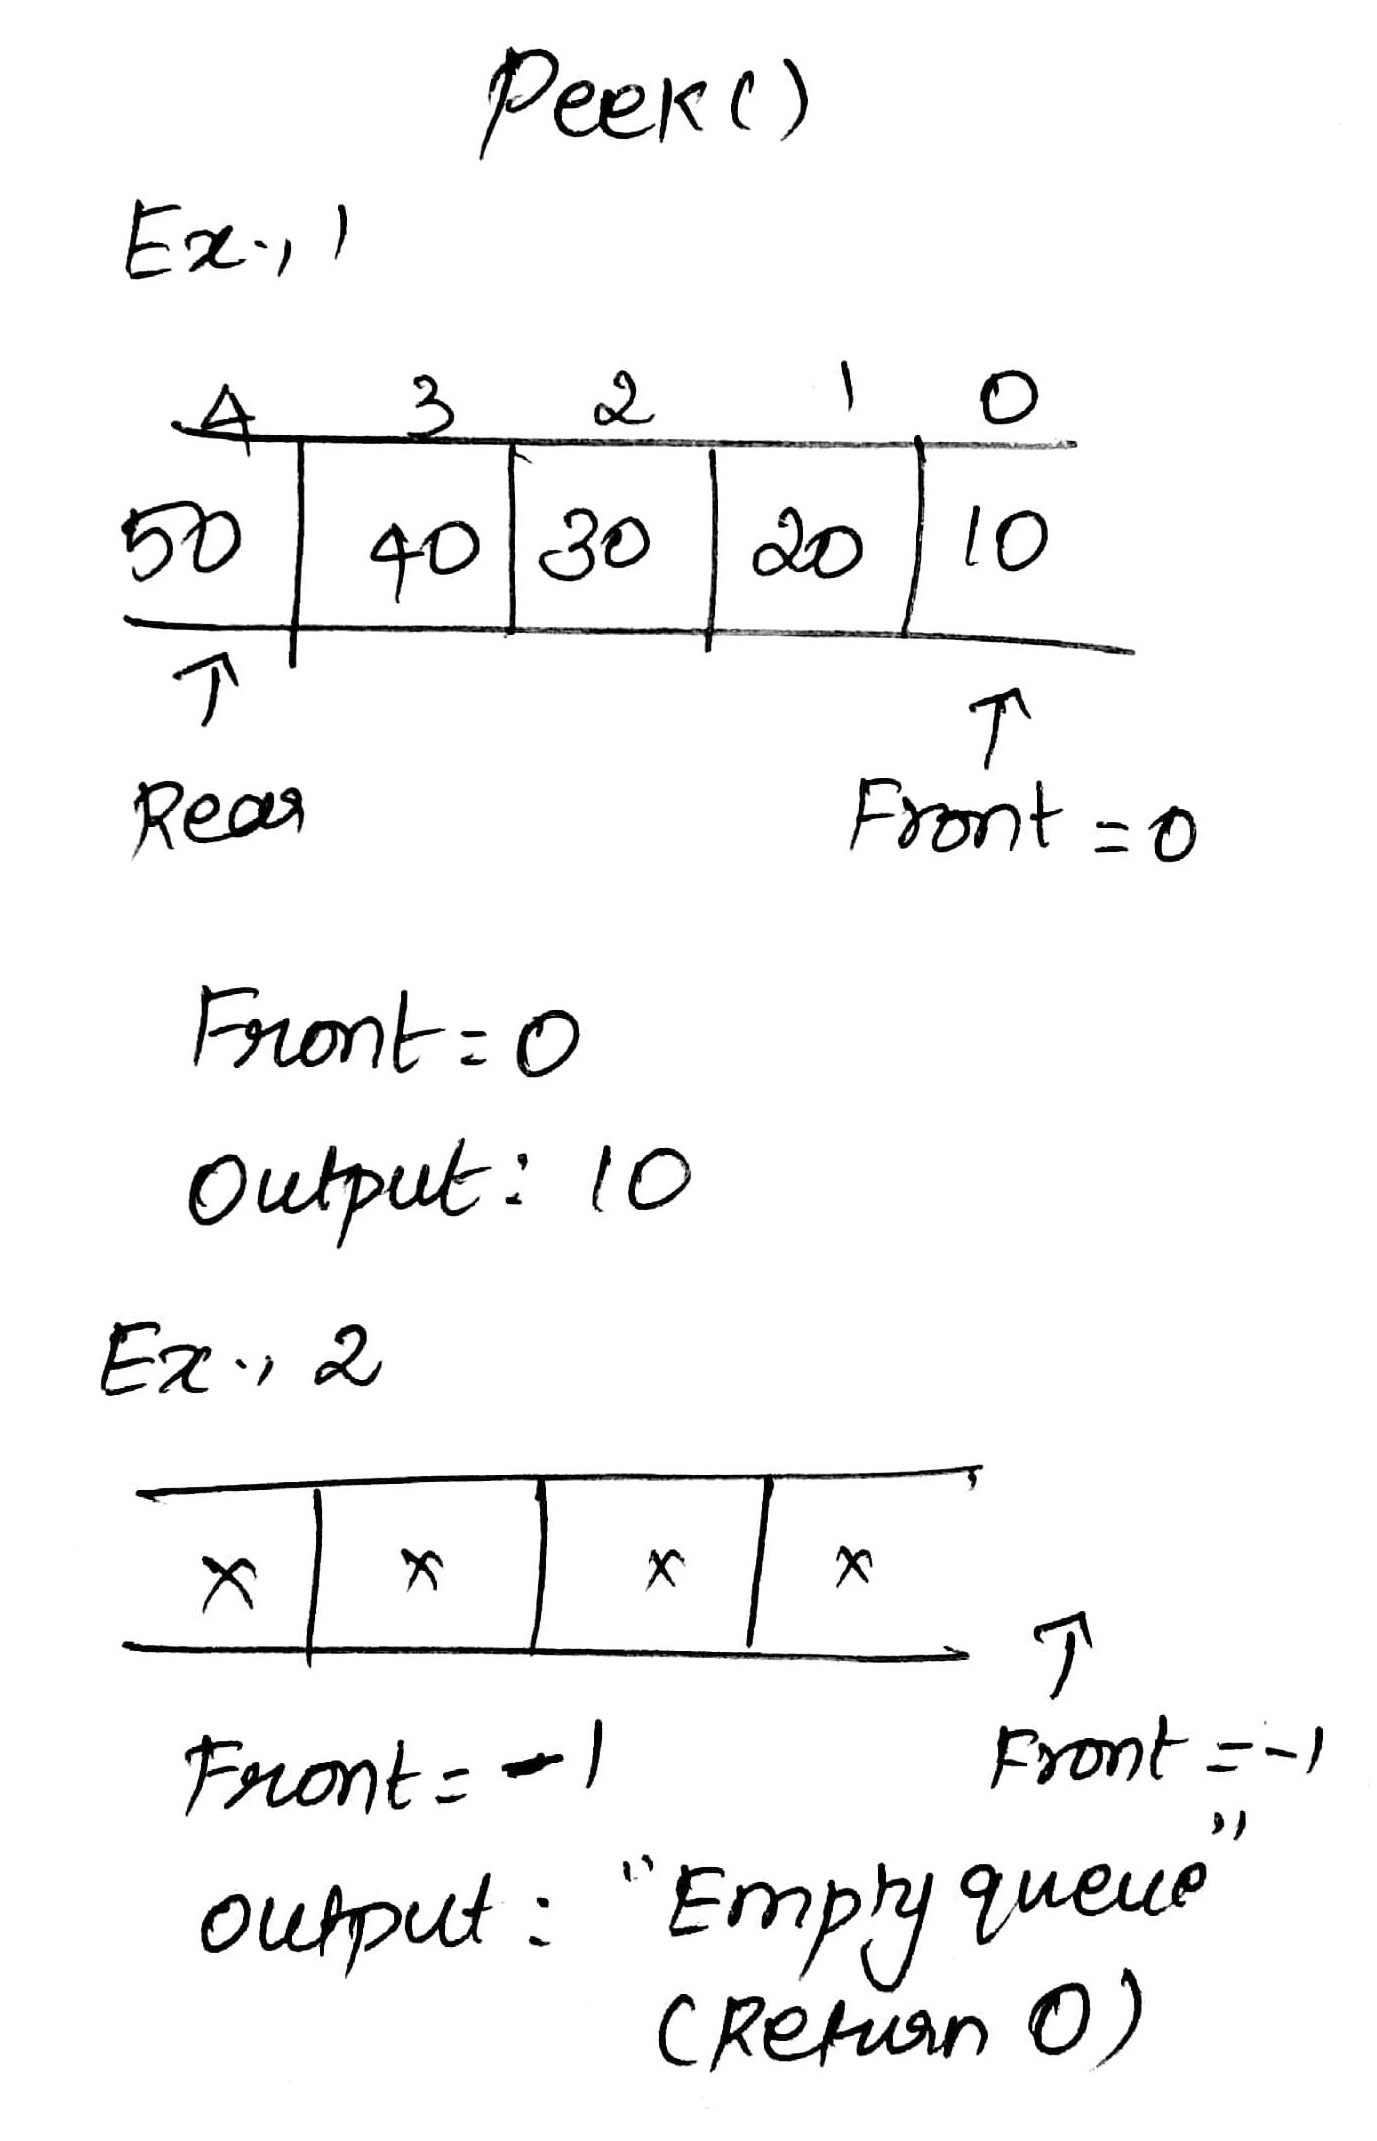 Peek()
Ex., 1
4 3 2 1 0
50 40 30 20 10
Rear
Front = 0
Front = 0
Output: 10
Ex., 2
x x x x
Front = -1
Front = -1
Output: "Empty queue"
(Return 0)